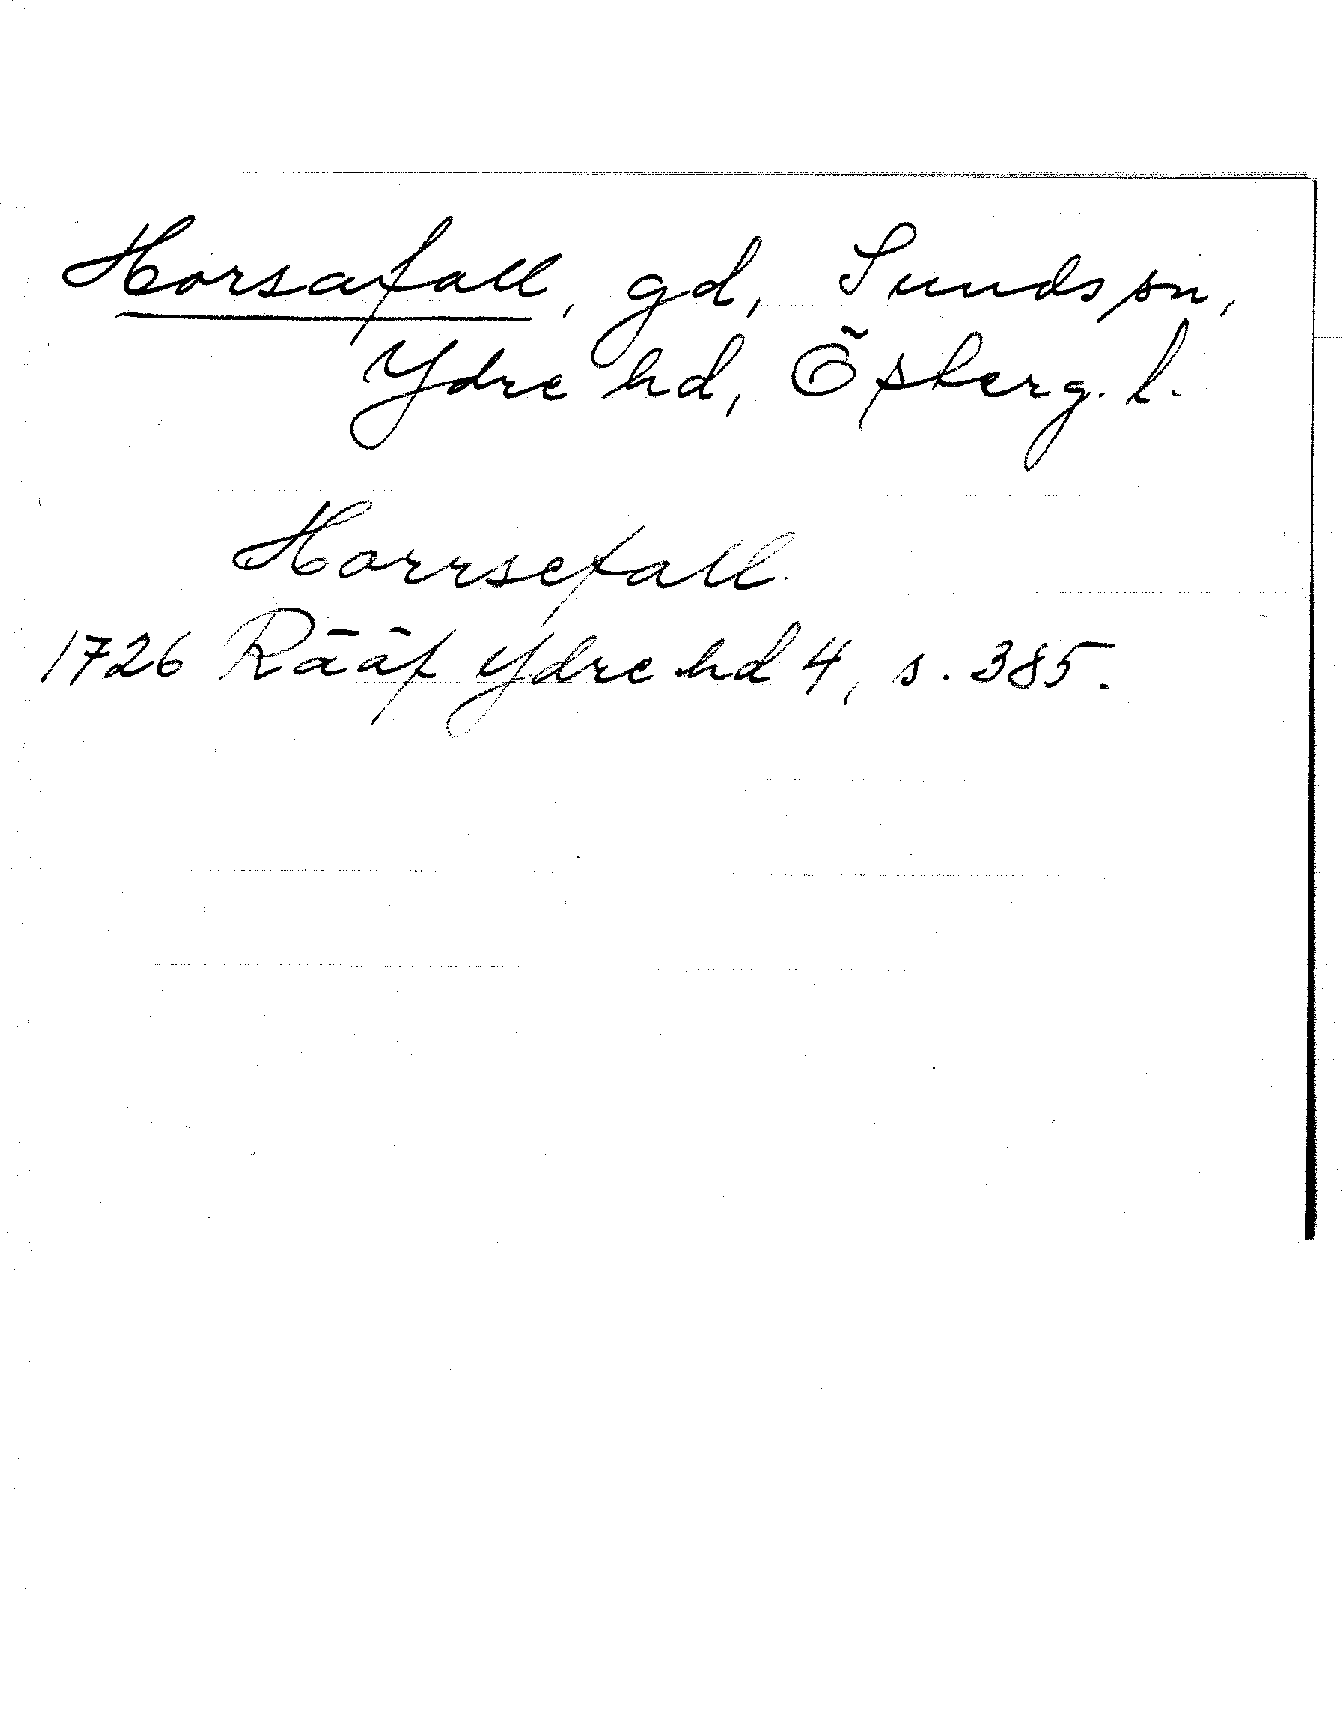 Horsafall, gd, Sunds sn,
Ydre hd, Ösberg. l.
Horrsefall
1726 Rääf Ydre hd 4, s. 385.